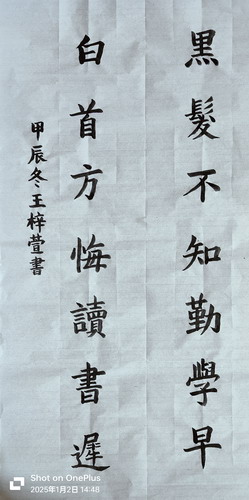 黑髮不知勤學早
白首方悔讀書遲
甲辰冬王梓萱書
Shot on OnePlus
2025年1月2日 14:48